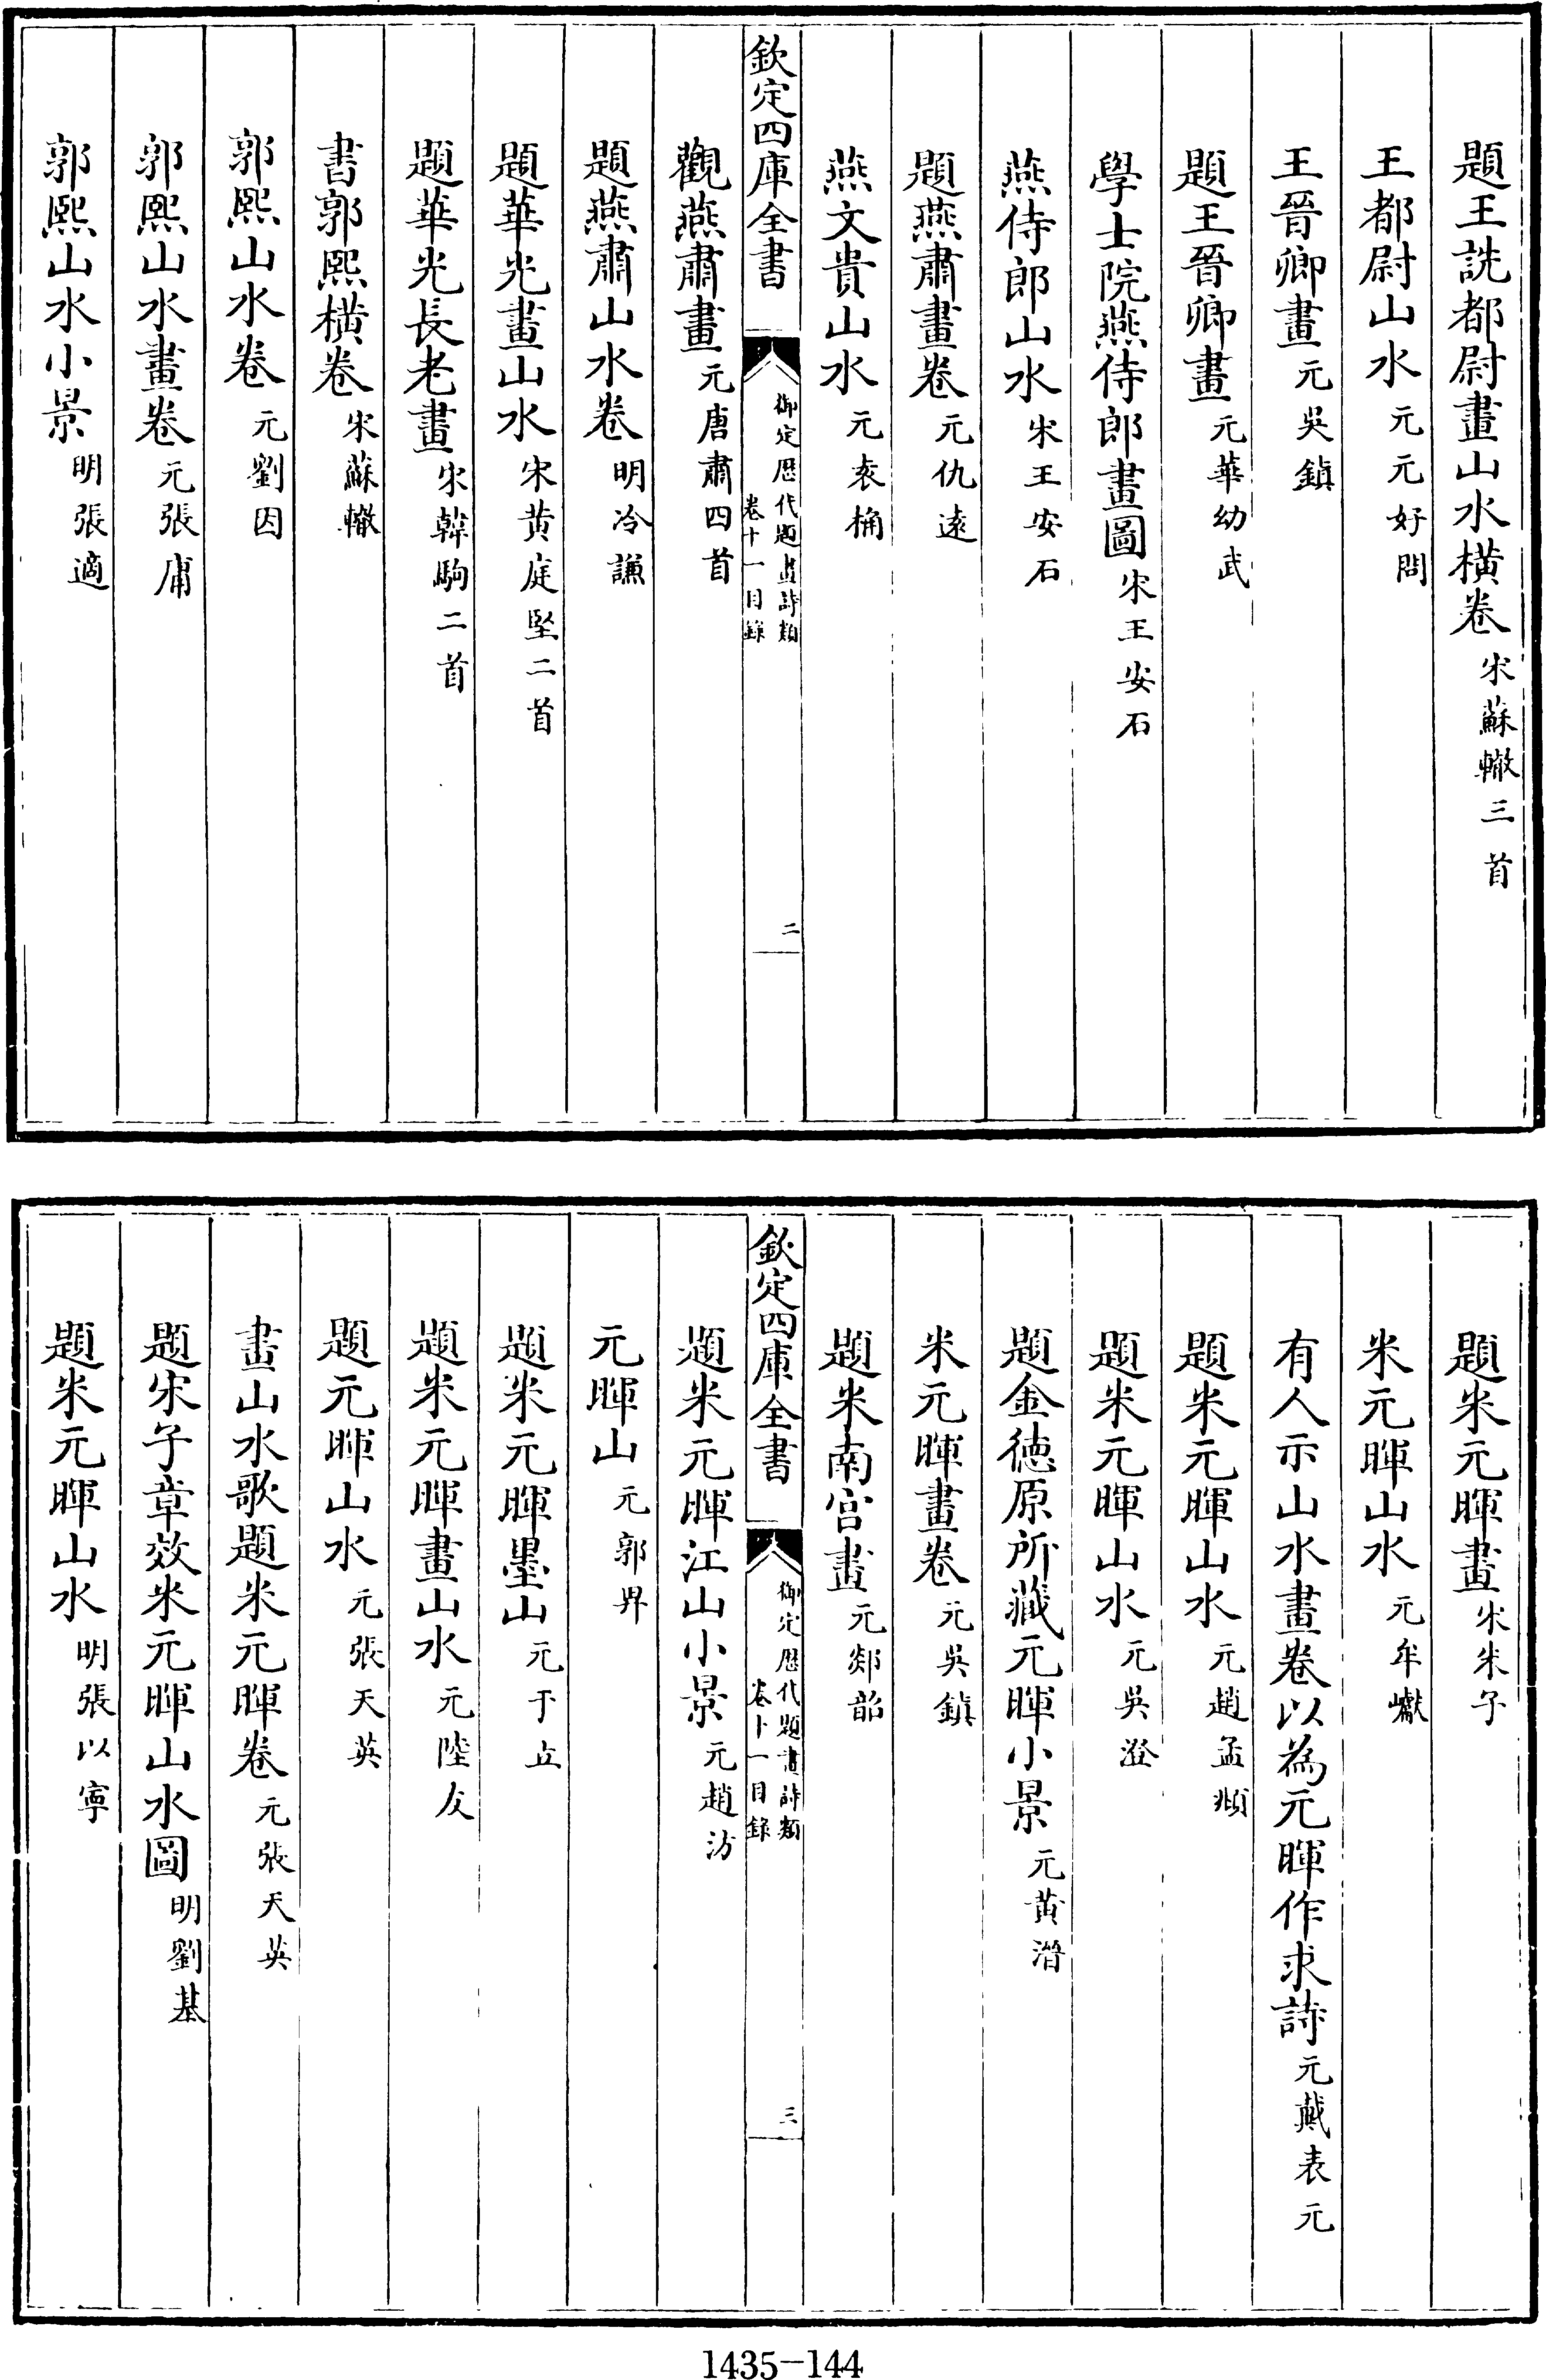 題王詵都尉畫山水橫卷宋蘇轍三首
王都尉山水元元好問
王晉卿畫元吳鎮
題王晉卿畫元華幼武
學士院燕侍郎畫圖宋王安石
燕侍郎山水宋王安石
題燕肅畫卷元仇遠
燕文貴山水元袁桷
欽定四庫全書
御定歷代題畫詩類
卷十一目錄
二
觀燕肅畫元唐肅四首
題燕肅山水卷明冷謙
題華光畫山水宋黃庭堅二首
題華光長老畫宋韓駒二首
書郭熙橫卷宋蘇轍
郭熙山水卷元劉因
郭熙山水畫卷元張庸
郭熙山水小景明張適
題米元暉畫宋朱子
米元暉山水元牟巘
有人示山水畫卷以為元暉作求詩元戴表元
題米元暉山水元趙孟頫
題米元暉山水元吳澄
題金德原所藏元暉小景元黃溍
米元暉畫卷元吳鎮
題米南宮畫元郯韶
欽定四庫全書
御定歷代題畫詩類
卷十一目錄
三
題米元暉江山小景元趙汸
元暉山元郭畀
題米元暉墨山元于立
題米元暉畫山水元陸友
題元暉山水元張天英
畫山水歌題米元暉卷元張天英
題宋子章效米元暉山水圖明劉基
題米元暉山水明張以寧
1435-144